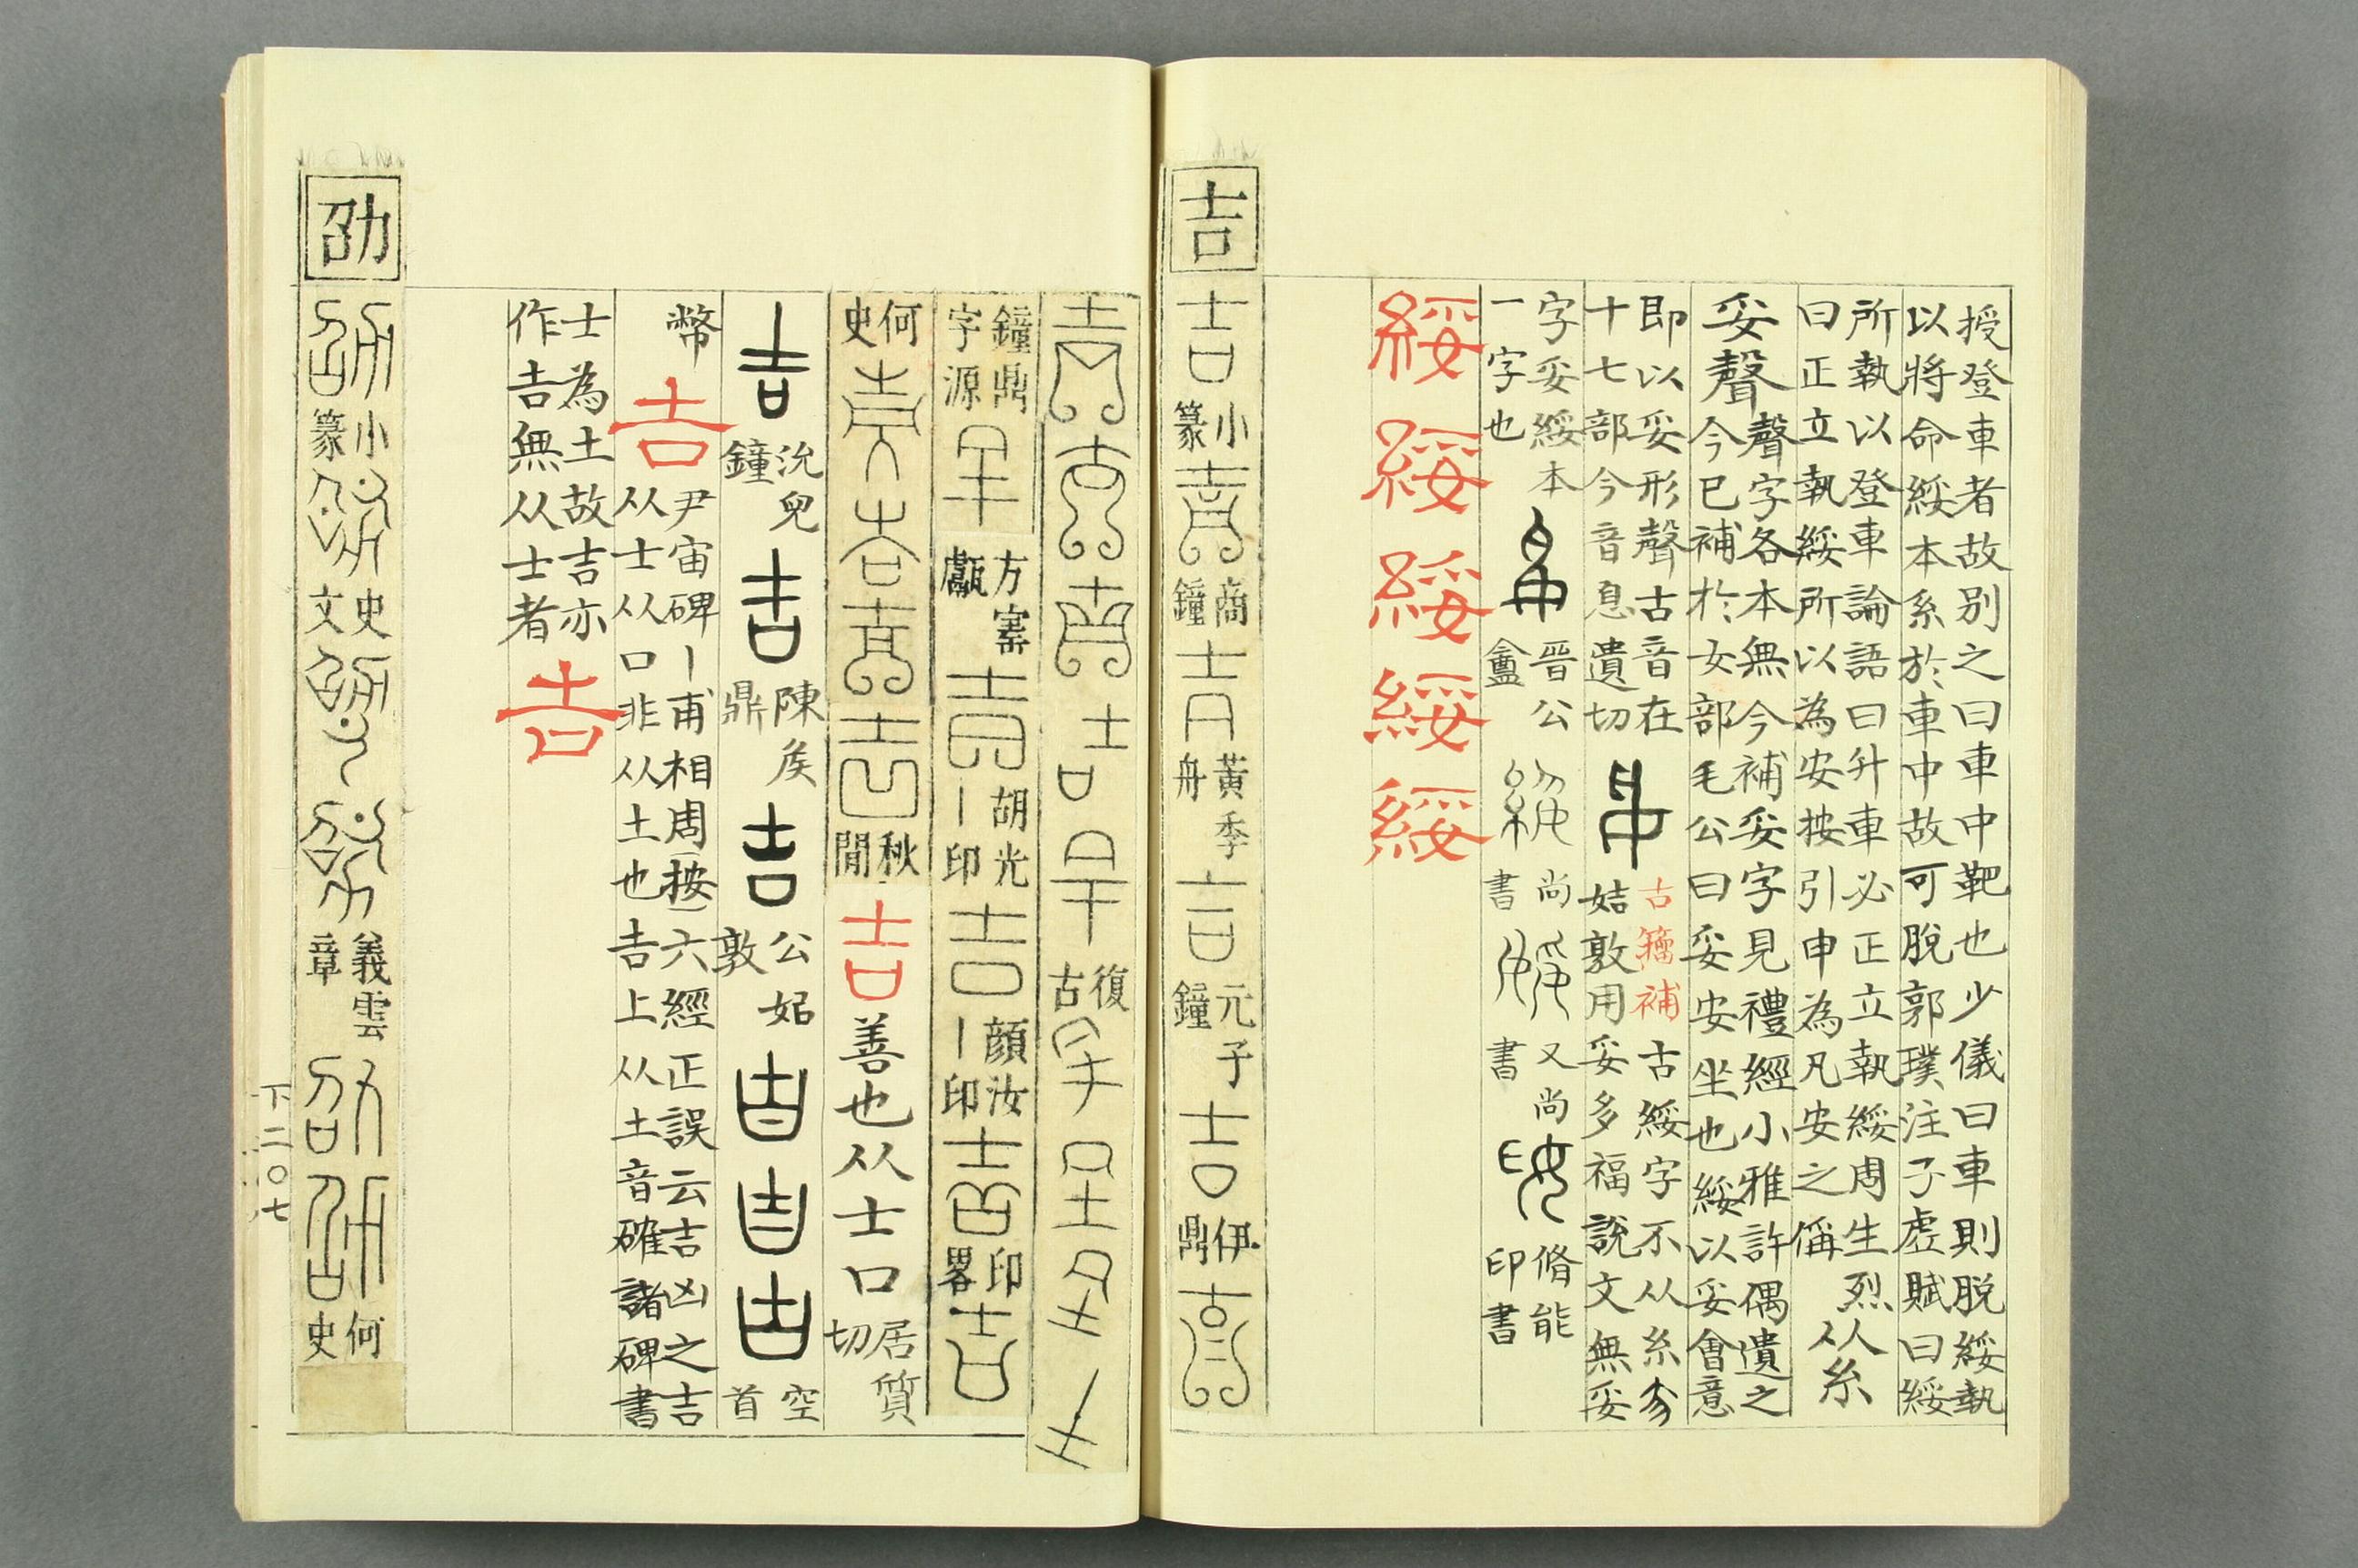 授登車者故別之曰車中靶也少儀曰車則脫綏執
以將命綏本系於車中故可脫郭璞注子虛賦曰綏
所執以登車論語曰升車必正立執綏周生烈
曰正立執綏所以為安按引申為凡安之偁
从糸
妥聲
聲字各本無今補妥字見禮經小雅許偶遺之
今已補於女部毛公曰妥安坐也綏以妥會意
即以妥形聲古音在
十七部今音息遺切
古籀補
古綏字不从糸
姞敦用妥多福說文無妥
字妥綏本
一字也
晉公
盦
尚
書
又尚
書
脩能
印書
綏綏綏綏綏
吉
吉
小
篆
商
鐘
黃季
舟
元子
鐘
伊
鼎
復
古
鐘鼎
字源
方寋
甗
胡光
丨印
顏汝
丨印
印
畧
何
史
秋
閒
吉善也从士口
居質
切
吉
沇兒
鐘
吉
陳侯
鼎
吉
公姞
敦
空
首
幣
吉
尹宙碑丨甫相周按六經正誤云吉凶之吉
从士从口非从土也吉上从土音確諸碑書
士為土故吉亦
作𠮷無从士者
𠮷
下二〇七
劭
小
篆
史
文
義雲
章
何
史